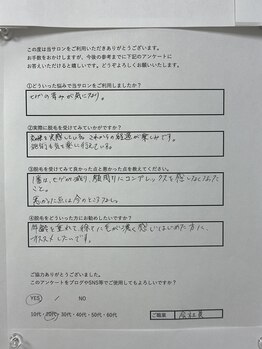 この度は当サロンをご利用いただきありがとうございます。
お手数をおかけしますが、今後の参考までに下記のアンケートに
お答えいただけると嬉しいです。どうぞよろしくお願いいたします。
①どういったお悩みで当サロンをご利用しましたか?
ヒゲの青みが気になり。
②実際に脱毛を受けてみていかがですか?
効果を実感している。これからの経過が楽しみです。
③脱毛を受けてみて良かった点と悪かった点を教えてください。
1番は、ヒゲが減り、顔周りにコンプレックスを感じなくなった
こと。
悪かった点は今のところなし。
④脱毛をどういった方にお勧めしたいですか?
年齢を重ねて、徐々に毛が濃く感じはじめた方に、
オススメしたいです。
ご協力ありがとうございました。
このアンケートをブログやSNS等でご使用してもよろしいですか?
YES / NO
10代・20代・30代・40代・50代・60代
ご職業 会社員